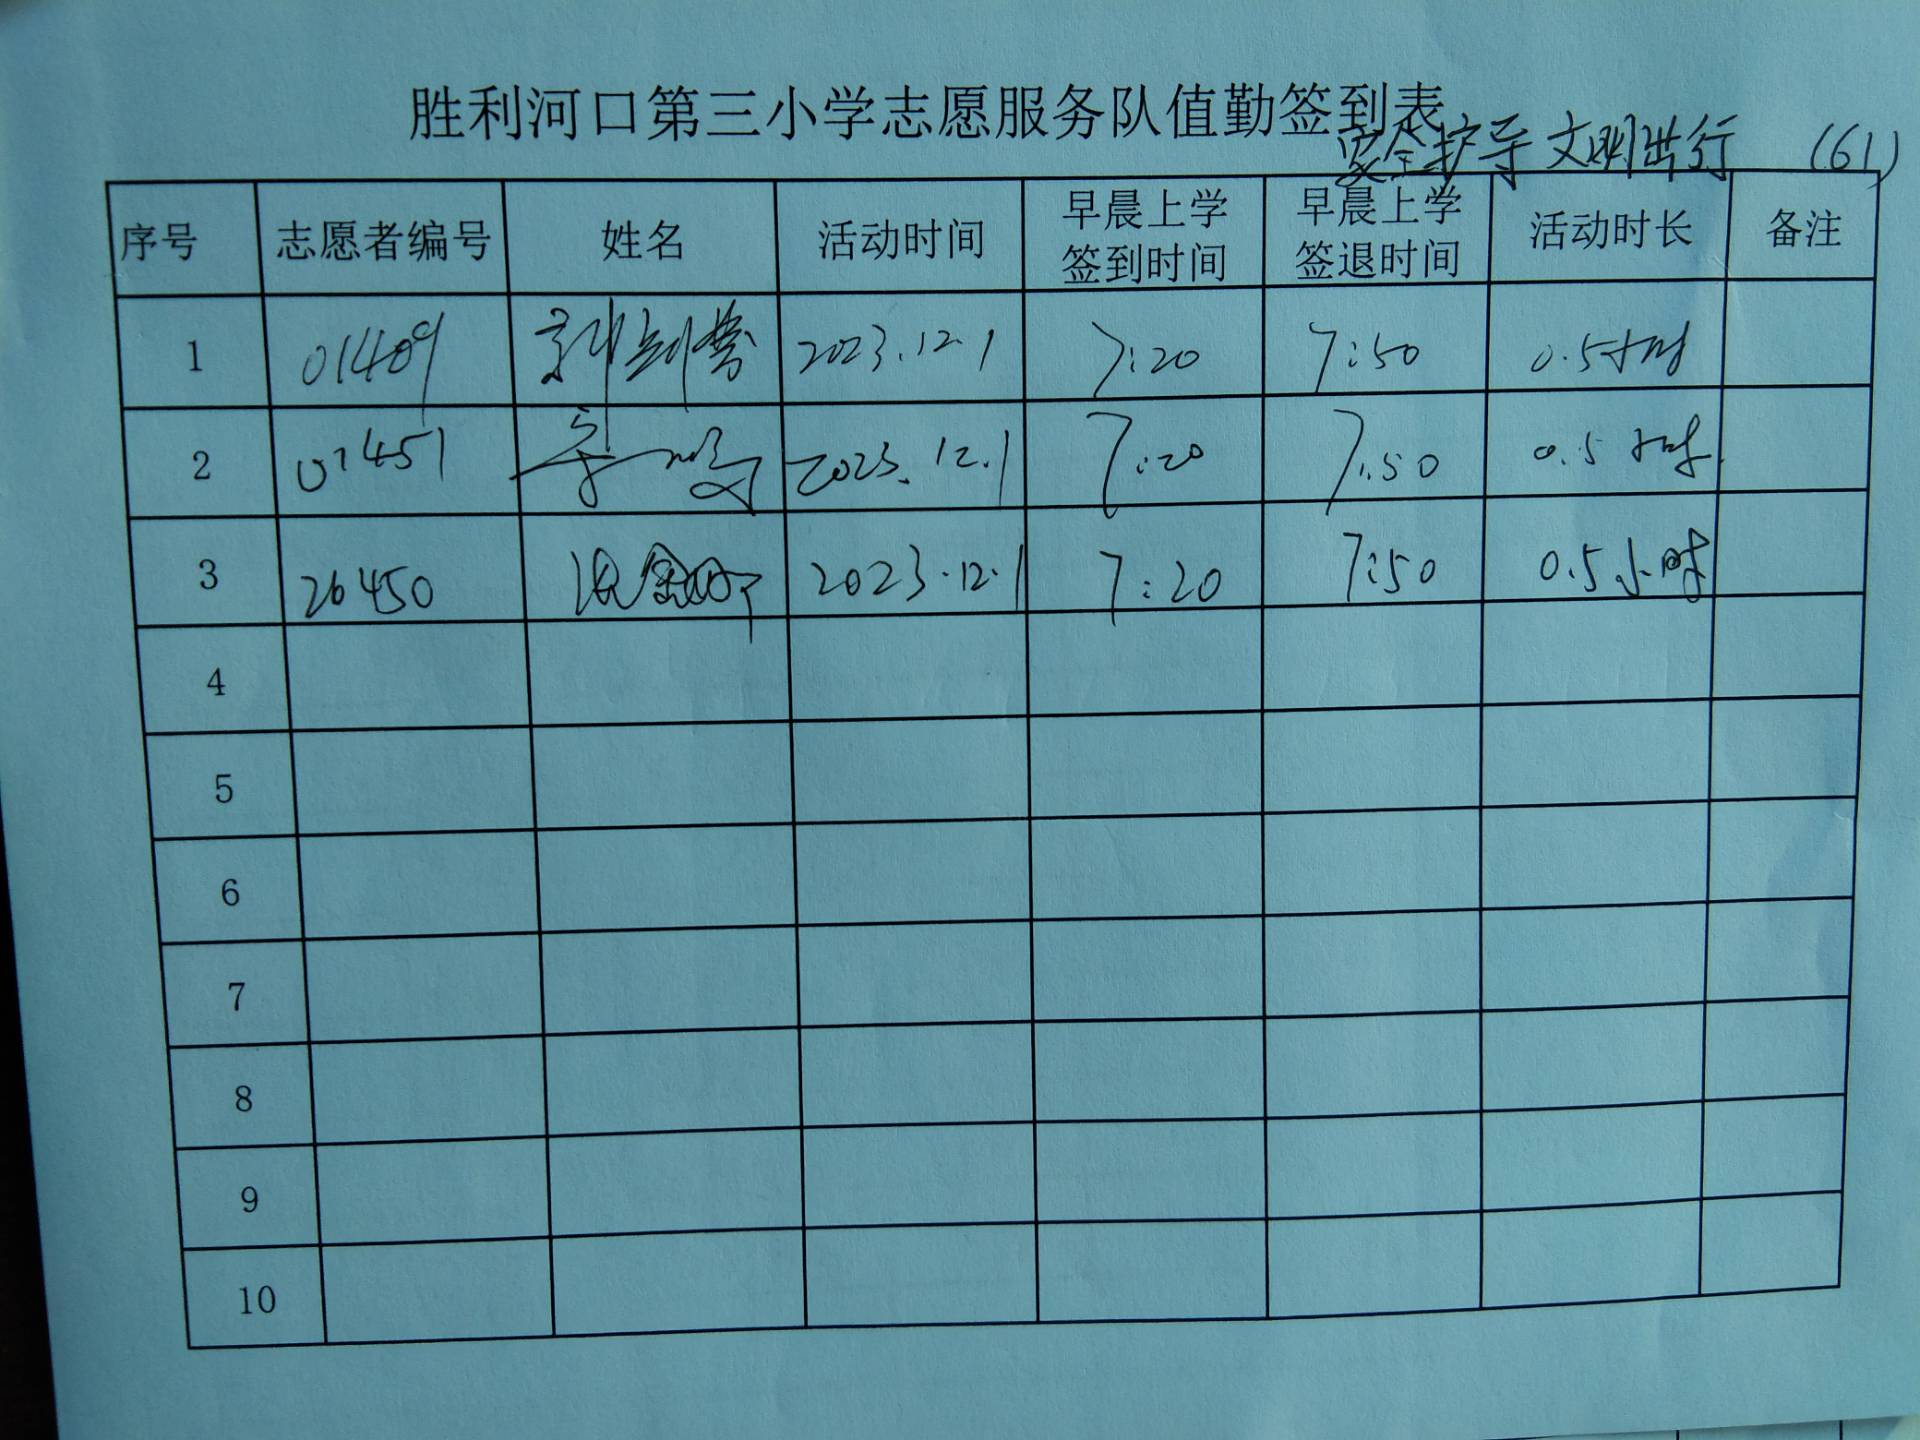 胜利河口第三小学志愿服务队值勤签到表
安全护导 文明出行 (61)
序号 志愿者编号 姓名 活动时间 早晨上学签到时间 早晨上学签退时间 活动时长 备注
1 01409 2023.12.1 7:20 7:50 0.5小时
2 01451 2023.12.1 7:20 7:50 0.5小时
3 26450 2023.12.1 7:20 7:50 0.5小时
4
5
6
7
8
9
10